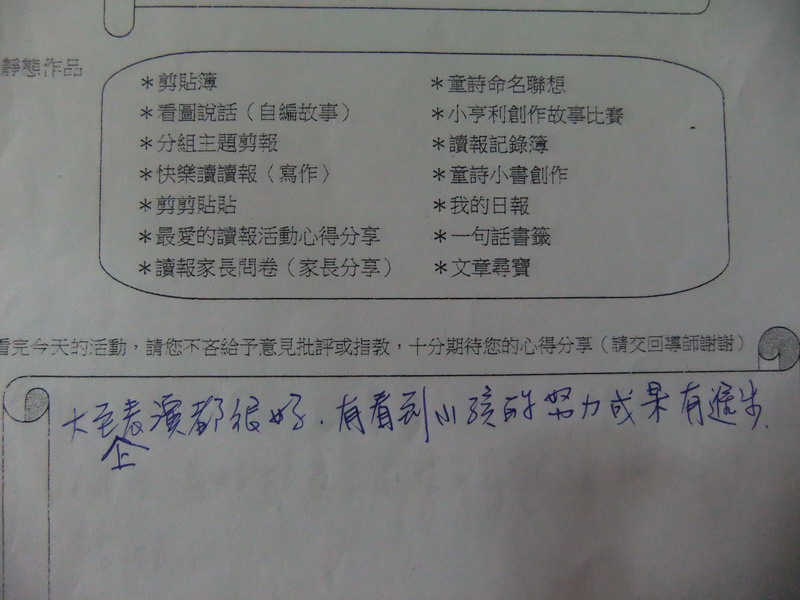 靜態作品
＊剪貼簿
＊看圖說話（自編故事）
＊分組主題剪報
＊快樂讀讀報〈寫作〉
＊剪剪貼貼
＊最愛的讀報活動心得分享
＊讀報家長問卷（家長分享）
＊童詩命名聯想
＊小亨利創作故事比賽
＊讀報記錄簿
＊童詩小書創作
＊我的日報
＊一句話書籤
＊文章尋寶
看完今天的活動，請您不吝給予意見批評或指教，十分期待您的心得分享（請交回導師謝謝）
大至上表演都很好，有看到小孩的努力成果有進步.